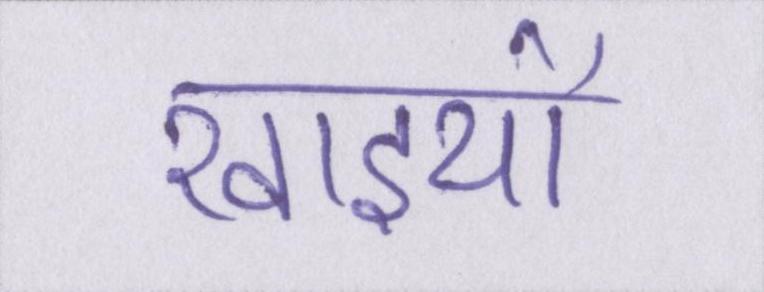 खाइयाँ